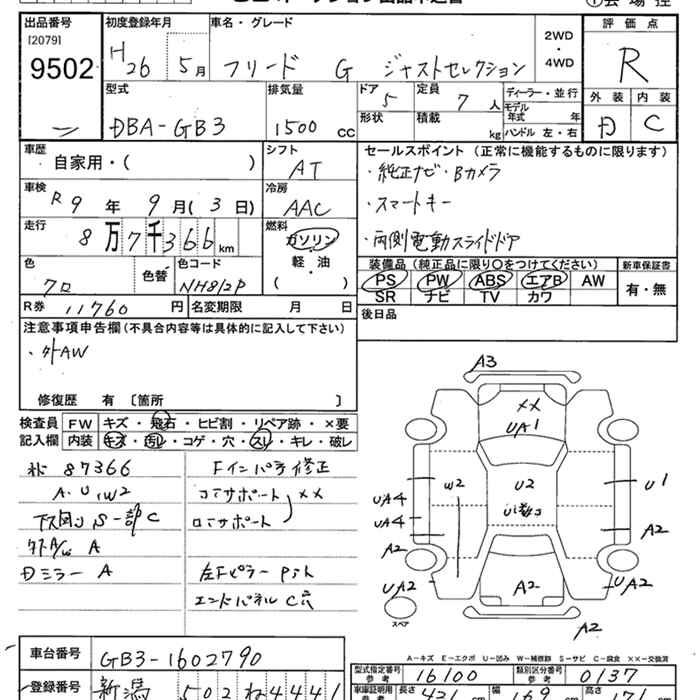 出品番号
[2079]
9502
初度登録年月
H26 5月
車名・グレード
フリード G ジャストセレクション
2WD
・
4WD
評価点
R
外装 内装
D C
型式
DBA-GB3
排気量
1500 cc
ドア 5
形状
定員 7 人
積載 kg
ディーラー・並行
モデル年式 年
ハンドル 左・右
車歴
自家用・( )
シフト
AT
車検
R9年 9月(3日)
冷房
AAC
走行
8万7千366km
燃料
ガソリン
軽・油
( )
色
クロ
色替
色コード
NH812P
R券 11760 円
名変期限 月 日
セールスポイント (正常に機能するものに限ります)
・純正ナビ・Bカメラ
・スマートキー
・両側電動スライドドア
装備品 (純正品に限り○をつけてください)
PS PW ABS エアB AW
SR ナビ TV カワ
新車保証書
有・無
後日品
注意事項申告欄 (不具合内容等は具体的に記入して下さい)
・外AW
修復歴 有 〔箇所 〕
検査員記入欄
FW キズ・飛石・ヒビ割・リペア跡・×要
内装 キズ・汚レ・コゲ・穴・スレ・キレ・破レ
87366
A.U,W2
下廻りS一部C
外A/W A
Dミラー A
Fインパネ修正
コアサポート ××
ロアサポート
左Fピラー
エンドパネル C穴
A3
××
UA1
W2
U2
UA4
UA4
A2
UA2
U1
A2
UA2
A2
A2
スペア
A-キズ E-エクボ U-凹み W-補修跡 S-サビ C-腐食 ××-交換済
車台番号
GB3-1602790
登録番号
新潟 502 ね 4441
型式指定番号 参考
16100
類別区分番号 参考
0137
車庫証明用 参考
長さ 421 cm
幅 169 cm
高さ 171 cm